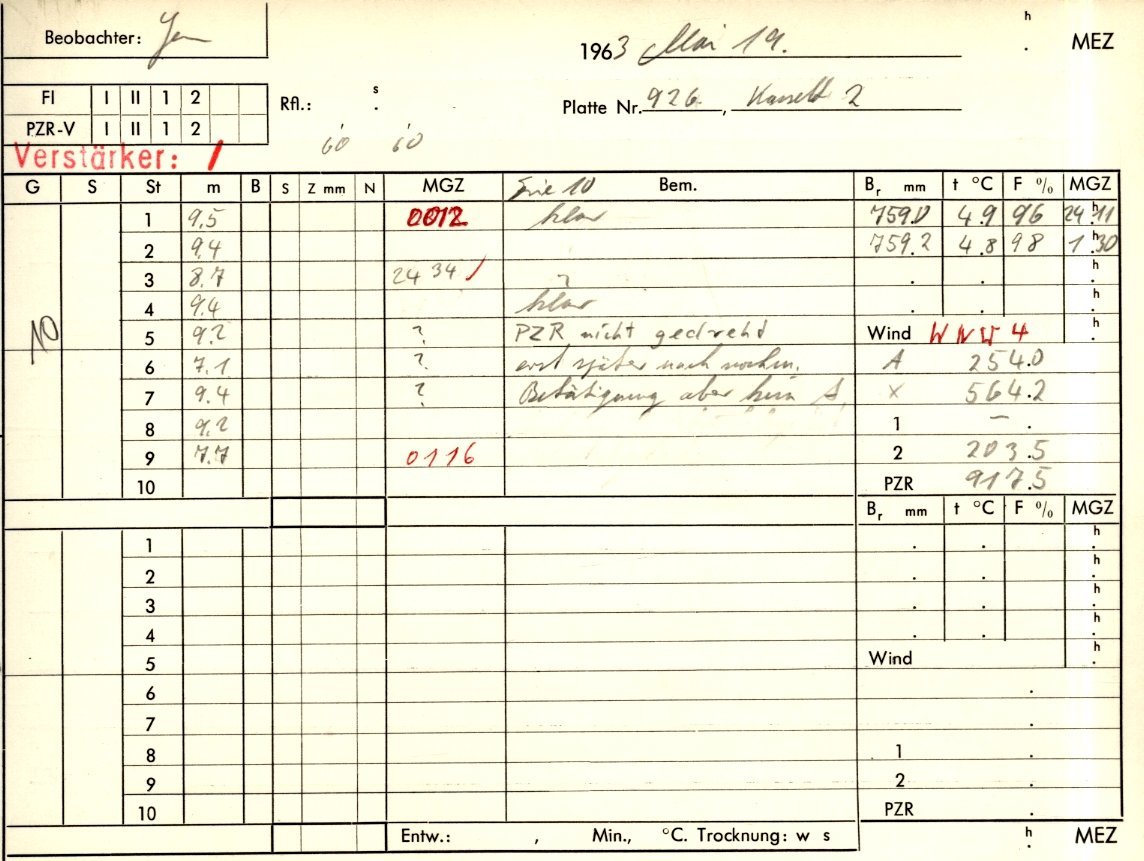 Beobachter:
1963 Mai 19. h . MEZ
FI I II 1 2
Rfl.: s .
Platte Nr. 926, 2
PZR-V I II 1 2
60 60
Verstärker: /
G S St m B S Z mm N MGZ 10 Bem. Br mm t °C F % MGZ
1 9.5 0012 klar 759.0 4.9 96 24 h 11
2 9.4 759.2 4.8 98 1 h 30
3 8.7 24 34 / ? . . h
4 9.4 klar . . h
10 5 9.2 ? PZR nicht gedreht Wind WNW 4 h .
6 7.1 ? erst später nach nochm. A 254.0
7 9.4 ? Betätigung aber kein A. x 564.2
8 9.2 1 – .
9 7.7 0116 2 203.5
10 PZR 917.5
Br mm t °C F % MGZ
1 . . h .
2 . . h .
3 . . h .
4 . . h .
5 Wind h .
6 .
7 .
8 1 .
9 2 .
10 PZR .
Entw.: , Min., °C. Trocknung: w s h . MEZ